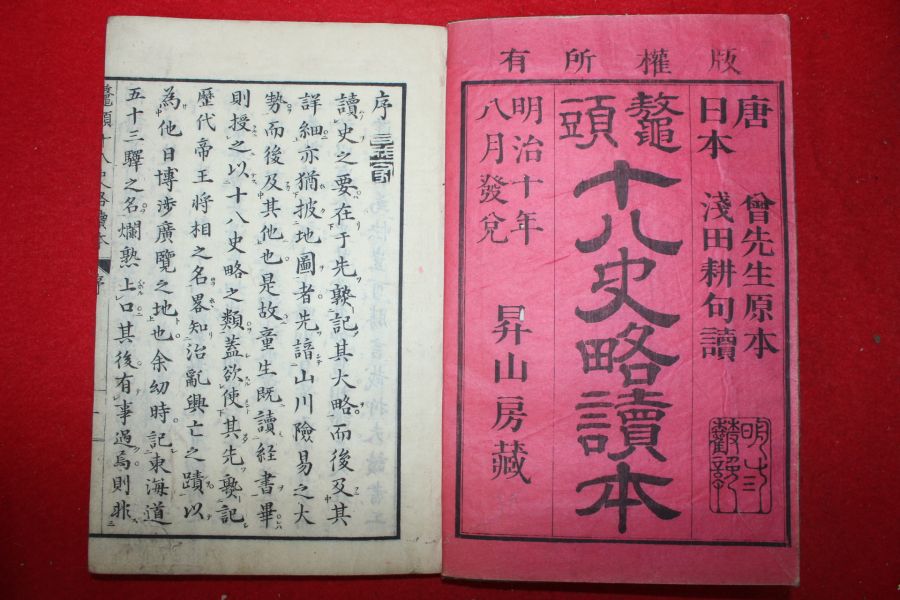 版權所有
唐 曾先生原本
日本 淺田耕句讀
鼇頭
十八史略讀本
明治十年
八月發兌
昇山房藏
序
讀史之要在于先槩記其大略而後及其
詳細亦猶披地圖者先諳山川險易之大
勢而後及其他也是故童生既讀経書畢
則授之以十八史略之類蓋欲使其先槩記
歷代帝王將相之名畧知治亂興亡之蹟以
為他日博涉廣覽之地也余幼時記東海道
五十三驛之名爛熟上口其後有事過焉則非
鼇頭十八史略讀本 序